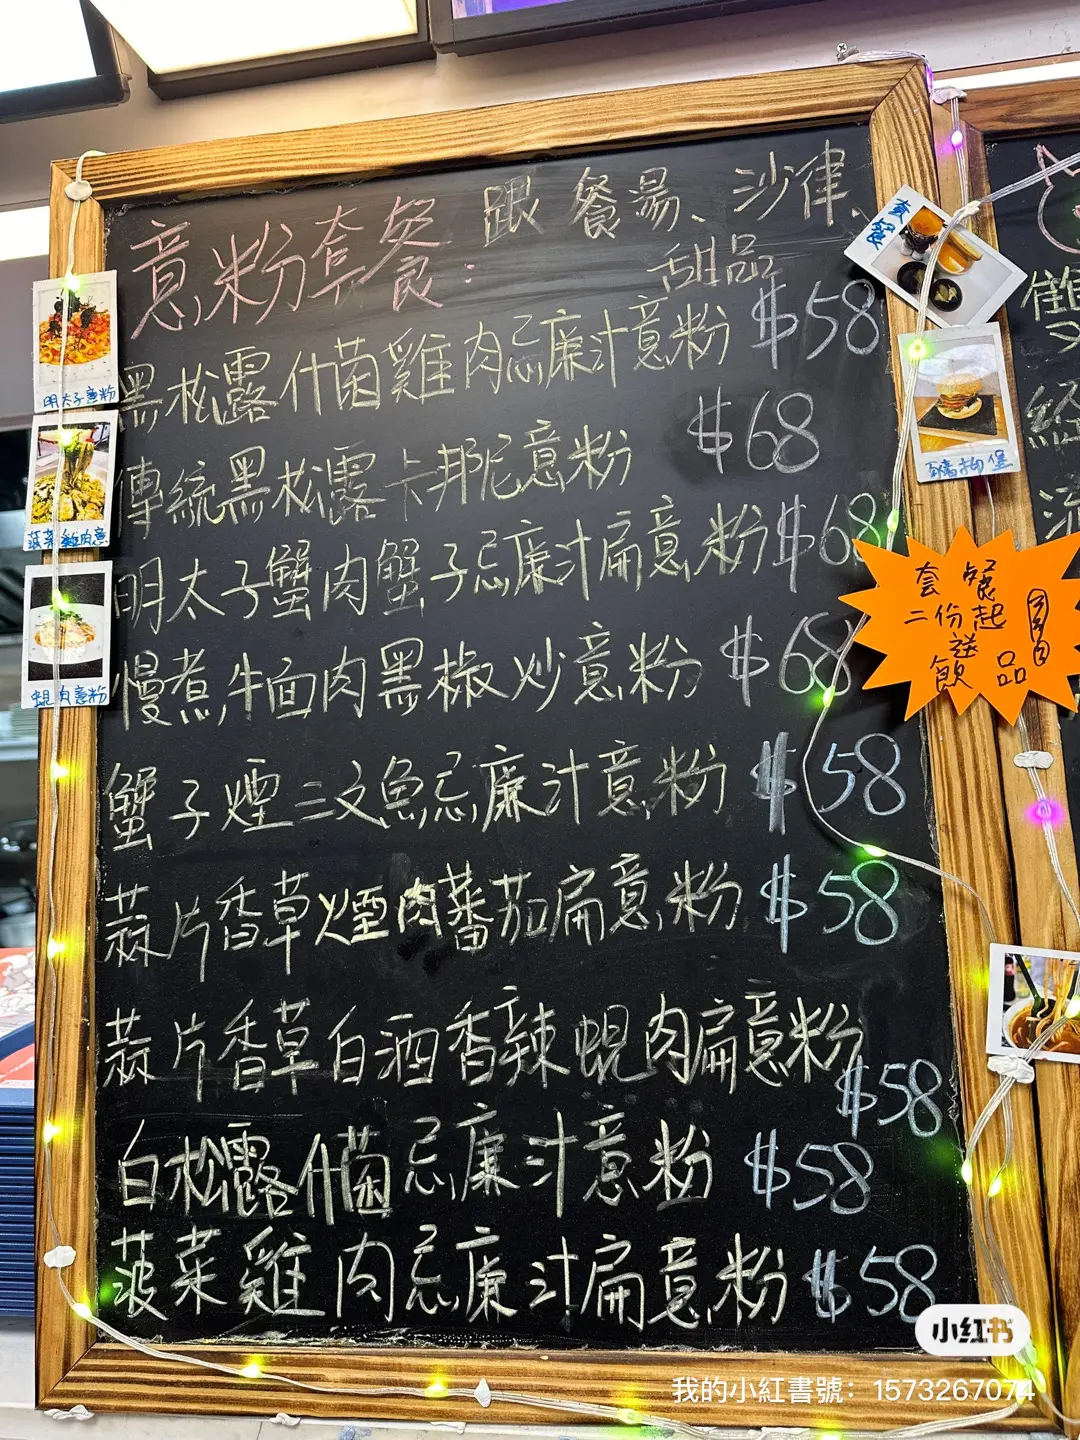 意粉套餐: 跟餐湯、沙律、
甜品
黑松露什菌雞肉忌廉汁意粉 $58
傳統黑松露卡邦尼意粉 $68
明太子蟹肉蟹子忌廉汁扁意粉 $68
慢煮牛面肉黑椒炒意粉 $68
蟹子煙三文魚忌廉汁意粉 $58
蒜片香草煙肉蕃茄扁意粉 $58
蒜片香草白酒香辣蜆肉扁意粉
$58
白松露什菌忌廉汁意粉 $58
菠菜雞肉忌廉汁扁意粉 $58
明太子意粉
菠菜雞肉意
蜆肉意粉
套餐
套餐
二份起
送
飲品
小红书
我的小紅書號：1573267074